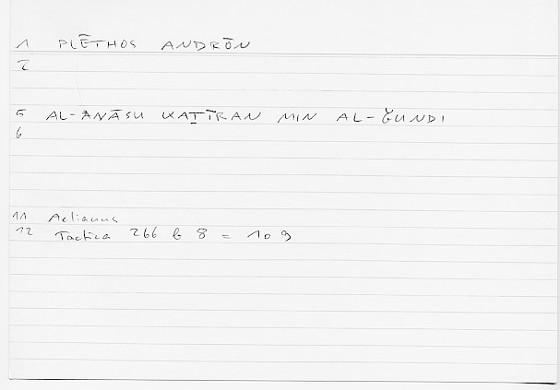 1 PLĒTHOS ANDRŌN
2
5 AL-ANĀSU KAṮĪRAN MIN AL-ǦUNDI
6
11 Aelianus
12 Tactica 266 b 8 = 10 9